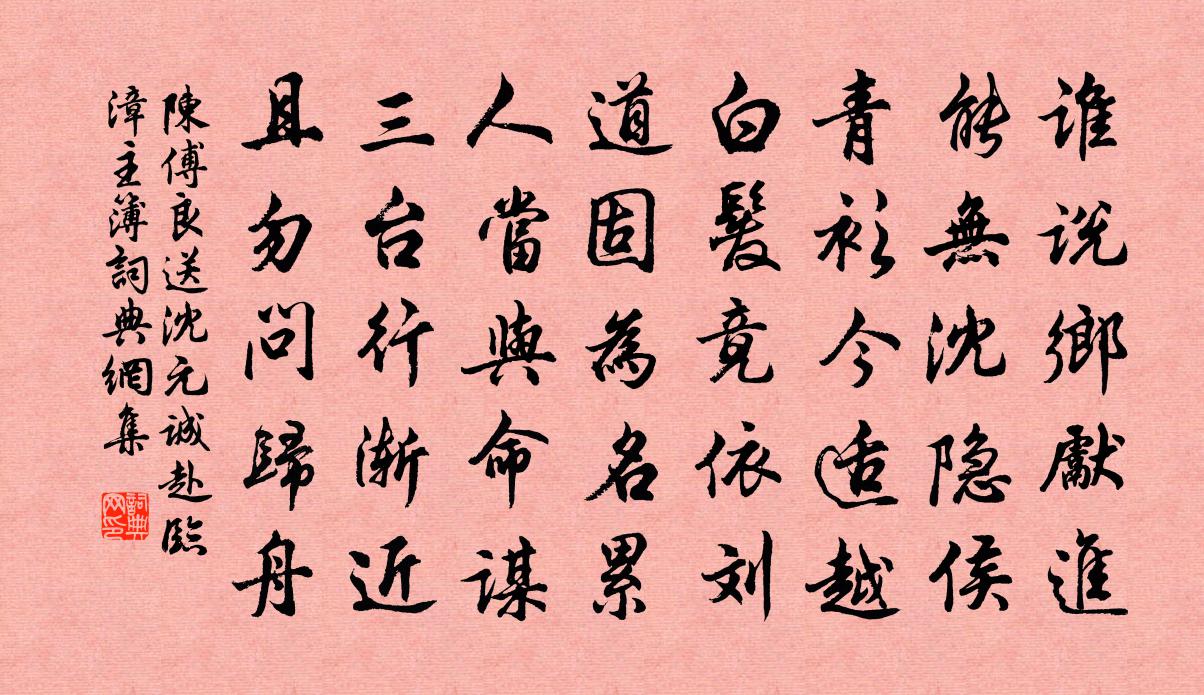 誰說鄉獻進
能無沈隐侯
青衫今适越
白髮竟依刘
道固為名累
人當與命謀
三台行漸近
且勿問歸舟
陳傅良送沈元誠赴臨
漳主簿詞典網集
詞典
网印